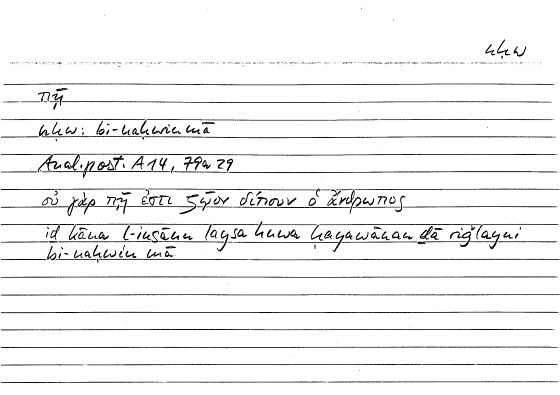 nḥw
πῄ
nḥw: bi-naḥwin mā
Anal. post. A 14, 79a29
οὐ γάρ πῄ ἐστι ζῷον δίπουν ὁ ἄνθρωπος
iḏ kāna l-insānu laysa huwa ḥayawānan ḏā riǧlayni
bi-naḥwin mā